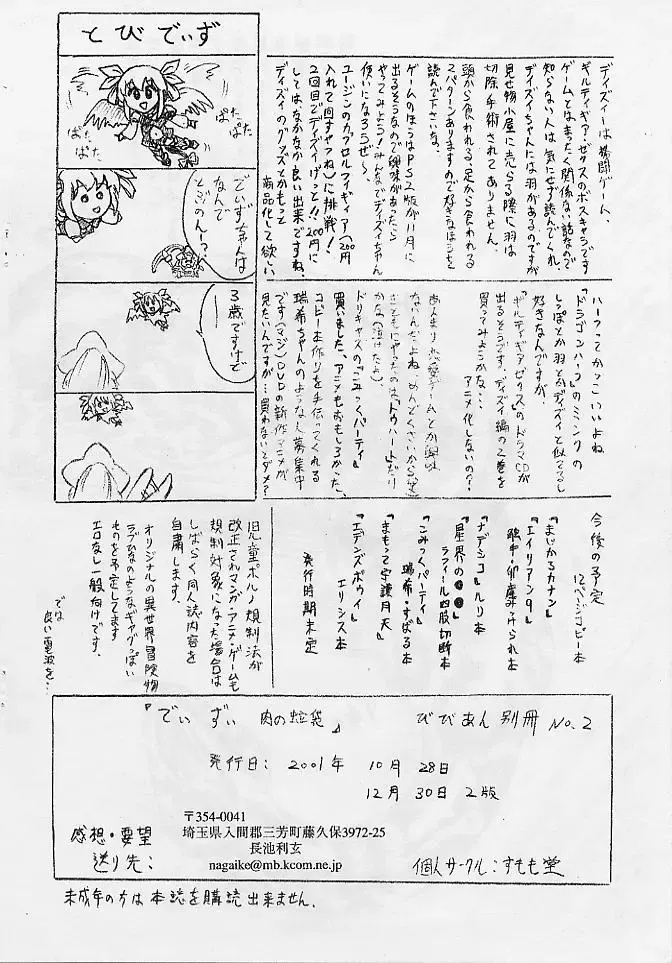 とびでぃず
ぱた
ぱた
ぱた
ぱた
でぃずぃちゃんは
なんで
とぶのん!?
3歳ですけど
ディズィーは格闘ゲーム、
ギルティギア・ゼクスのボスキャラです
ゲームとはまったく関係ない話なので
知らない人は気にせず読んでくれ
ディズィちゃんには羽があるのですが
見せ物小屋に売らる際に羽は
切除手術されてありません。
頭から食われる、足から食われる
2パターンありますので好きなほうを
読んで下さいな。
ゲームのほうはPS2版が11月に
出るそうなので興味があったら
やってみよう!みんなでディズィちゃん
使いになろうぜ〜
ユージンのカプセルフィギュア(200円
入れて回すやつね)に挑戦!
2回目でディズィげっと!!200円に
してはなかなか良い出来ですね。
ディズィのグッズとかもって
商品化して欲しい。
ハーフってかっこいいよね
『ドラゴンハーフ』のミンクの
しっぽとか羽とかディズィと似てるし
好きなんですが、
『ギルティギアゼクス』のドラマCDが
出るそうです。ディズィ編の2巻を
買ってみようかな…
アニメ化しないの??
あんまり恋愛ゲームとか興味
ないんだよね、めんどくさいから(笑)
まともにやったのはトゥハートだけ
かな(泣けたよ)
ドリキャスの『こみっくパーティ』
買いました、アニメもおもしろかった。
コピー本作りを手伝ってくれる
瑞希ちゃんのような人募集中
です(マジ)DVDの新作アニメが
見たいんですが…買わないとダメ?
今後の予定
12ページコピー本
『まじかるカナン』
『エイリアン9』
『ナデシコ』ルリ本
『星界の●●』
ラフィール四股切断本
『こみっくパーティ』
瑞希・すばる本
『まもって守護月天』
『エデンズボウイ』
エリシス本
発行時期未定
児童ポルノ規制法が
改正されマンガ・アニメ・ゲームも
規制対象になった場合は
しばらく同人誌内容を
自粛します。
オリジナルの異世界冒険物
ラブひなのようなギャグっぽい
ものを予定してます
エロなし一般向けです。
では
良い電波を…
『でぃずぃ 肉の
袋』
びびあん 別冊 No.2
発行日: 2001年 10月 28日
12月 30日 2版
〒354-0041
埼玉県入間郡三芳町藤久保3972-25
長池利玄
nagaike@mb.kcom.ne.jp
感想・要望
送り先:
個人サークル:すもも堂
未成年の方は本誌を購読出来ません.